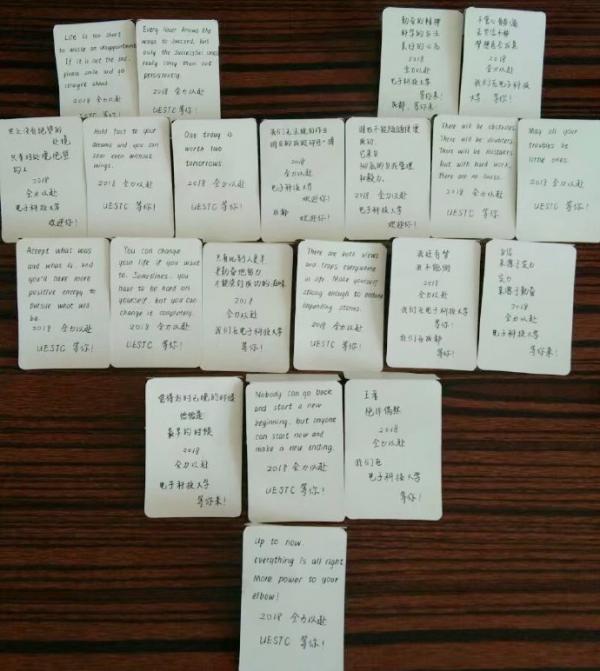 Life is too short
to waste on disappointment.
If it is not the end,
please smile and go
straight ahead.
2018 全力以赴
UESTC 等你!
Every lover knows the
ways to succeed, but
only the successful ones
really carry them out
persistently.
2018 全力以赴
UESTC 等你!
勤奋的精神
科学的方法
良好的心态
2018
全力以赴
电子科技大学
等你来!
成都,等你来!
2018
全力以赴
我们在电子科技
大学 等你!
世上没有绝望的
处境
只有对处境绝望
的人
2018
全力以赴
电子科技大学
欢迎你!
Hold fast to your
dreams and you can
soar even without
wings.
2018 全力以赴
UESTC 等你!
One today is
worth two
tomorrows.
2018 全力以赴
UESTC 等你!
2018
全力以赴
电子科技大学
欢迎你!
成都
欢迎你!
谁也不能随随便便
成功,
它来自
彻底的自我管理
和毅力。
2018 全力以赴
电子科技大学
欢迎你!
There will be obstacles.
There will be doubters.
There will be mistakes.
But with hard work,
there are no limits.
2018 全力以赴
UESTC 等你!
May all your
troubles be
little ones.
2018 全力以赴
UESTC 等你!
Accept what was
and what is, and
you'll have more
positive energy to
pursue what will
be.
2018 全力以赴
UESTC 等你!
You can change
your life if you want
to. Sometimes, you
have to be hard on
yourself, but you can
change it completely.
2018 全力以赴
UESTC 等你!
只有比别人更早
更勤奋地努力
才能尝到成功的滋味
2018
全力以赴
我们在电子科技大学
等你!
There are both views
and traps everywhere
in life. Make yourself
strong enough to endure
impending storms.
2018 全力以赴
UESTC 等你!
2018
全力以赴
我们在电子科技大学
等你!
我们在成都
等你!
自信
来源于实力
实力
来源于勤奋
2018
全力以赴
电子科技大学
等你来!
觉得为时已晚的时候
恰恰是
最早的时候
2018
全力以赴
电子科技大学
等你来!
Nobody can go back
and start a new
beginning, but anyone
can start now and
make a new ending.
2018 全力以赴
UESTC 等你!
王者
绝非偶然
2018
全力以赴
我们在
电子科技大学
等你!
Up to now,
everything is all right.
More power to your
elbow!
2018 全力以赴
UESTC 等你!